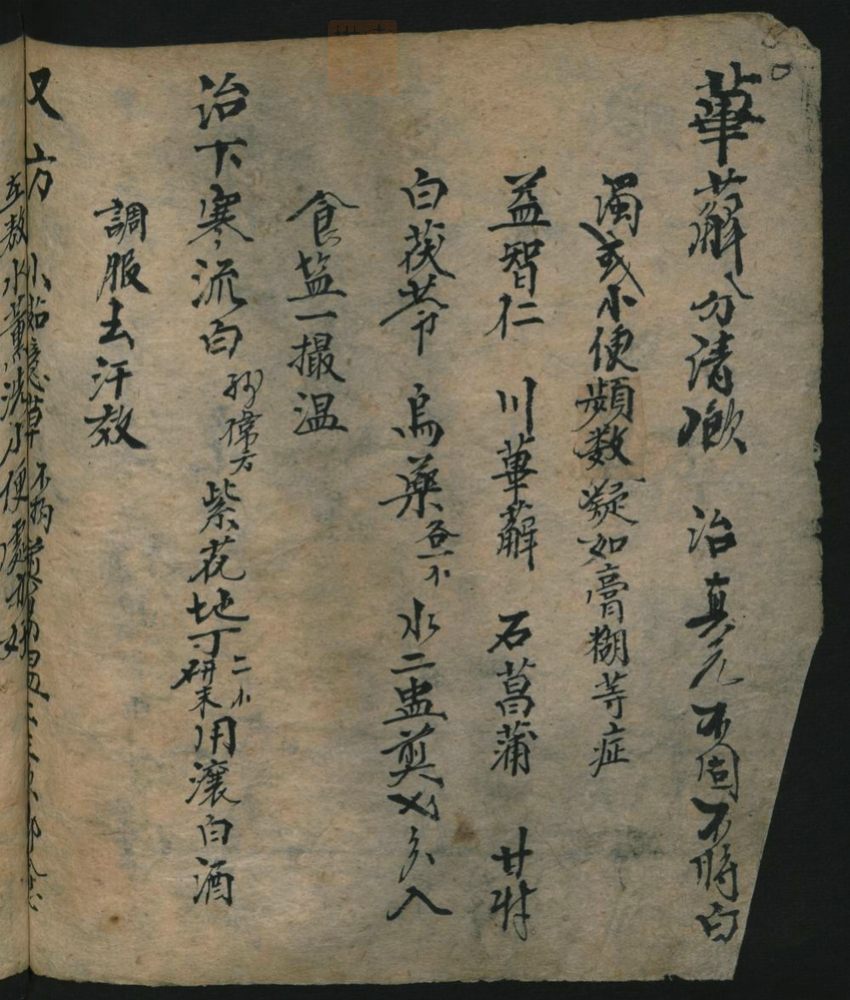 萆薢分清飲 治真元不固不時白
濁或小便頻数凝如膏糊等症
益智仁 川萆薢 石菖蒲 甘艸
白茯苓 烏藥各一小 水二盅煎七分入
食盐一撮温
治下寒流白 紫花地丁二小研末用滾白酒
調服去汗效
又方 不拘
水薰洗小便處